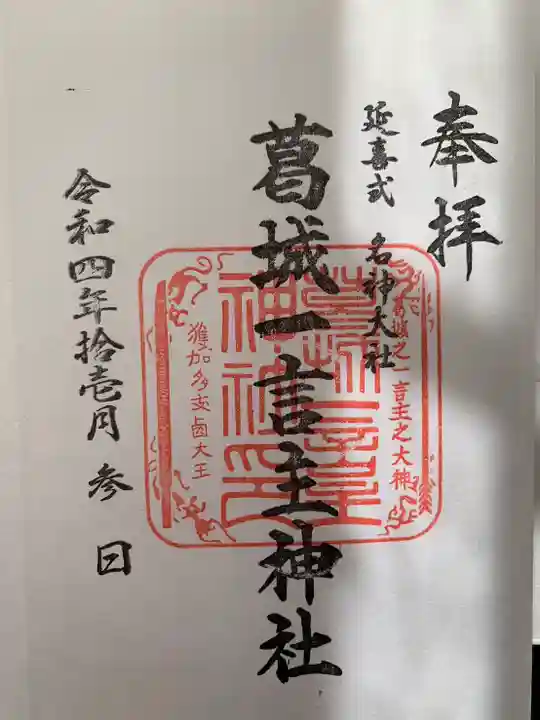 奉拝
延喜式 名神大社
葛城一言主神社
葛城之一言主之大神
葛城一言主
神社印
獲加多支鹵大王
令和四年拾壱月参日